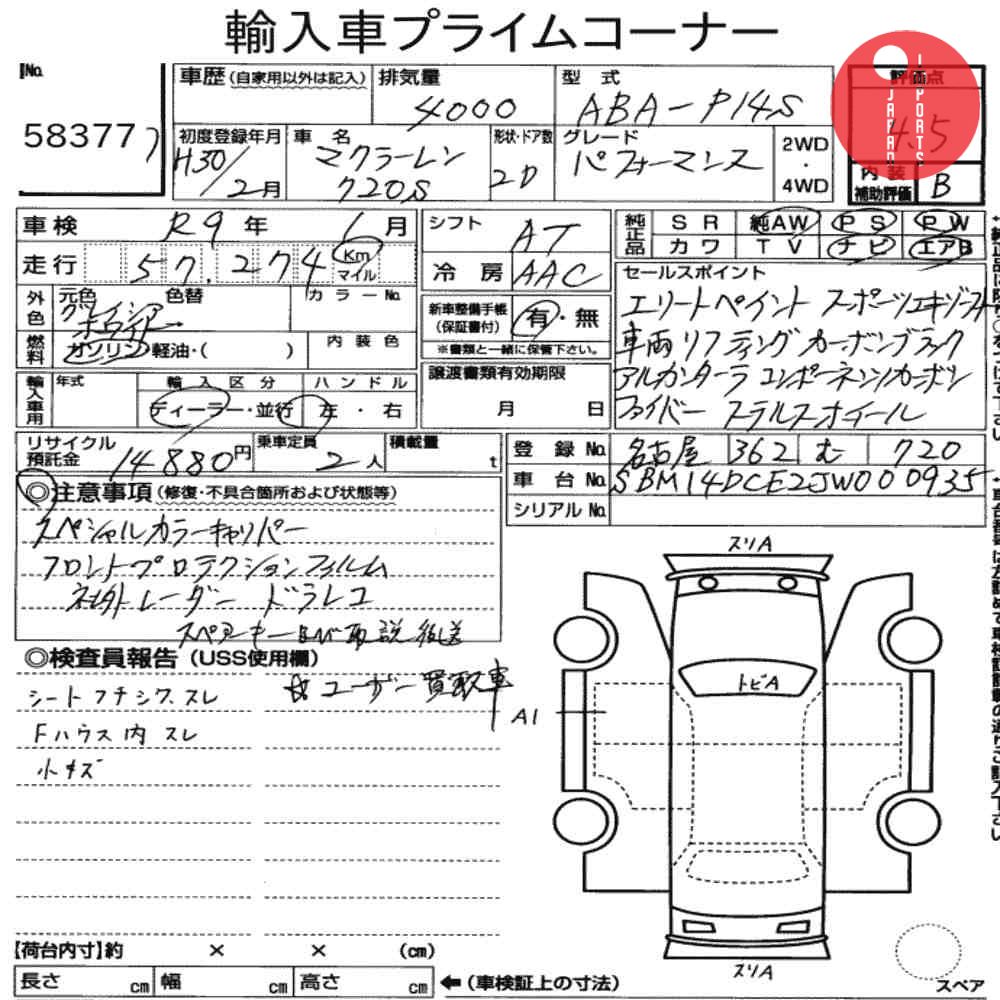 輸入車プライムコーナー
No. 58377
車歴 (自家用以外は記入) 排気量 4000 型式 ABA-P14S
評価点 4.5
JAPAN IMPORTS
初度登録年月 H30/2月 車名 マクラーレン 720S 形状・ドア数 2D グレード パフォーマンス 2WD・4WD
内装補助評価 B
車検 R9年 6月
走行 57.274 Km マイル
シフト AT
冷房 AAC
純正品 SR 純AW PS PW
カワ TV ナビ エアB
外色 元色 グレイシアホワイト 色替 カラーNo.
燃料 ガソリン・軽油・( ) 内装色
新車整備手帳(保証書付) 有・無
※書類と一緒に保管下さい。
セールスポイント
エリートペイント スポーツエキゾースト
車両リフティング カーボンブラック
アルカンターラ コンポーネンツカーボン
ファイバー ステルスホイール
輸入車用 年式 輸入区分 ディーラー・並行 ハンドル 左・右
譲渡書類有効期限 月 日
リサイクル預託金 14880円 乗車定員 2人 積載量 t
登録No. 名古屋 362 む 720
車台No. SBM14DCE2JW000935
シリアルNo.
◎注意事項 (修復・不具合箇所および状態等)
スペシャルカラーキャリパー
フロントプロテクションフィルム
社外レーダー ドラレコ
スペアキー 取説 後送
◎検査員報告 (USS使用欄)
シートフチシワ.スレ
Fハウス内 スレ
小キズ
ユーザー買取車
スリA
トビA
A1
スリA
スペア
【荷台内寸】約 × × (cm)
長さ cm 幅 cm 高さ cm ←(車検証上の寸法)